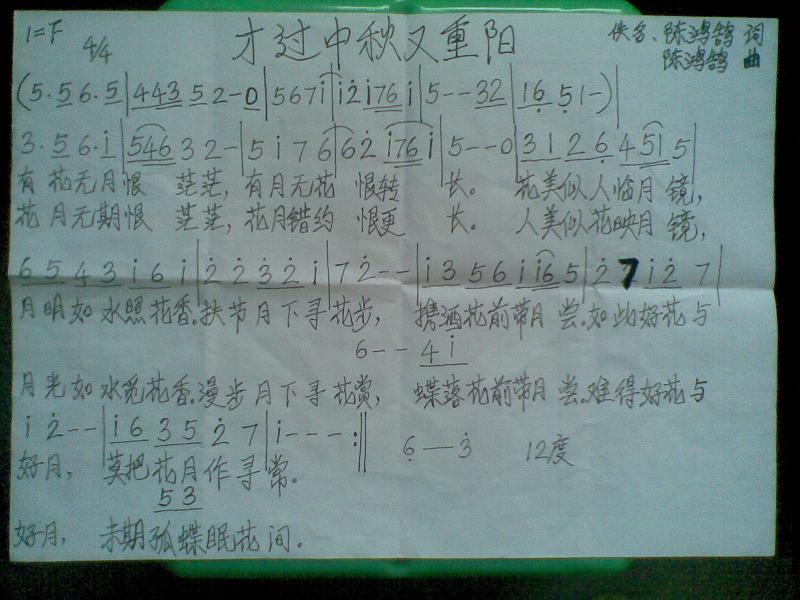 1=F 4/4 才过中秋又重阳 佚名、陈鸿鹄 词
陈鸿鹄 曲
(5. 5 6. 5 | 4 4 3 5 2 - 0 | 5 6 7 i̇ | i̇ 2̇ i̇ 7 6 i̇ | 5 - - 3 2 | 1 6̣ 5̣ 1 - ) |
3. 5 6. i̇ | 5 4 6 3 2 - | 5 i̇ 7 6 | 6 2̇ i̇ 7 6 i̇ | 5 - - 0 | 3 1 2 6̣ 4 5 1 5 |
有花无月恨 茫茫,有月无花 恨转 长。 花美似人临月镜,
花月无期恨 茫茫,花月错约 恨更 长。 人美似花映月镜,
6 5 4 3 i̇ 6 i̇ | 2̇ 2̇ 3̇ 2̇ i̇ | 7 2̇ - - | i̇ 3 5 6 i̇ i̇ 6 5 | 2̇ 7 i̇ 2̇ 7 |
月明如水照花香。扶节月下寻花步, 携酒花前带月尝。如此好花与
6 - - 4 i̇
月光如水觅花香。漫步月下寻花赏, 蝶落花前带月尝。难得好花与
i̇ 2̇ - - | i̇ 6 3 5 2̇ 7 | i̇ - - - :‖ 6̣ — 3̇ 12度
好月, 莫把花月作寻常。
5 3
好月, 未期孤蝶眠花间。